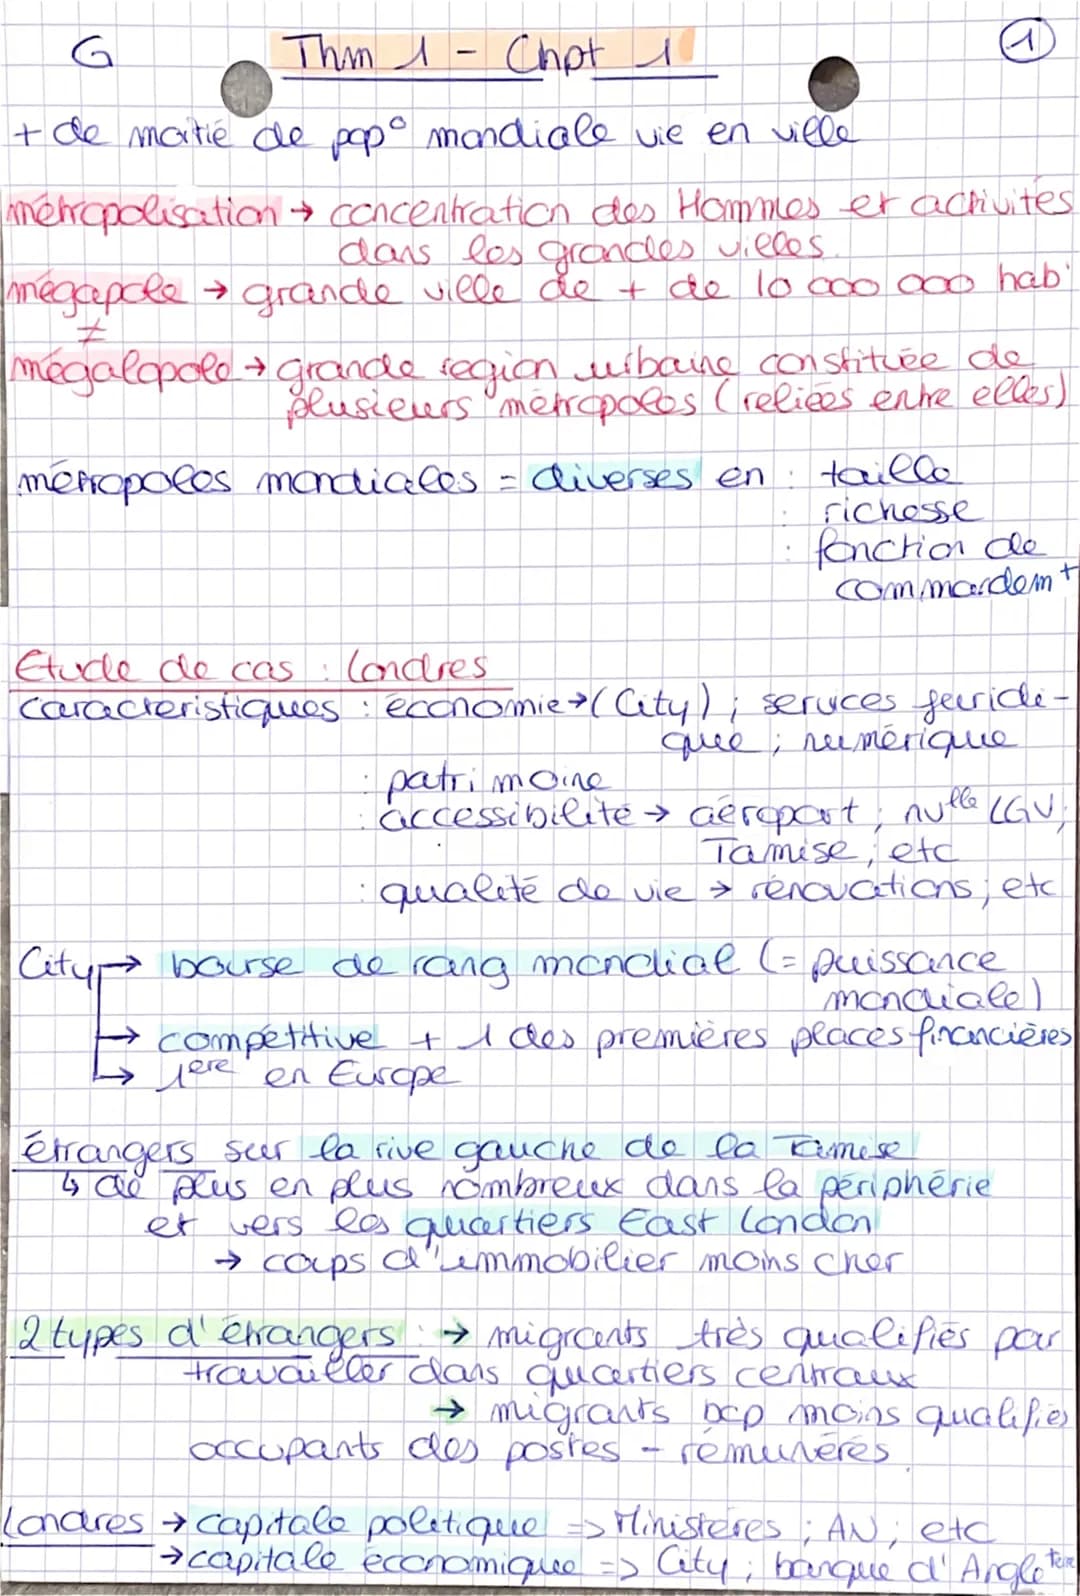 G Thm 1 - Chpt 1 1
+ de moitié de pop° mondiale vie en ville
métropolisation → concentration des Hommes et activités
dans les grandes villes.
mégapole → grande ville de + de 10 000 000 hab
≠
mégalopole → grande region urbaine constituée de
plusieurs métropoles (reliées entre elles)
métropoles mondiales = diverses en : taille
: richesse
: fonction de
commandemt
Etude de cas : Londres
caracteristiques : économie → (City) ; services juridi-
que ; numérique
: patrimoine
: accessibilité → aéroport ; nvlle LGV;
Tamise ; etc
: qualité de vie → rénovations ; etc
City → bourse de rang mondial (= puissance
mondiale)
→ compétitive + 1 des premières places financières
→ 1ere en Europe
étrangers sur la rive gauche de la Tamise
↳ de plus en plus nombreux dans la périphérie
et vers les quartiers East London
→ coups d'immobilier moins cher
2 types d'étrangers : → migrants très qualifiés pour
travailler dans quartiers centraux
→ migrants bcp moins qualifiés
occupants des postes - rémunérés
Londres → capitale politique => Ministères ; AN ; etc
→ capitale économique => City ; banque d'Angleterre